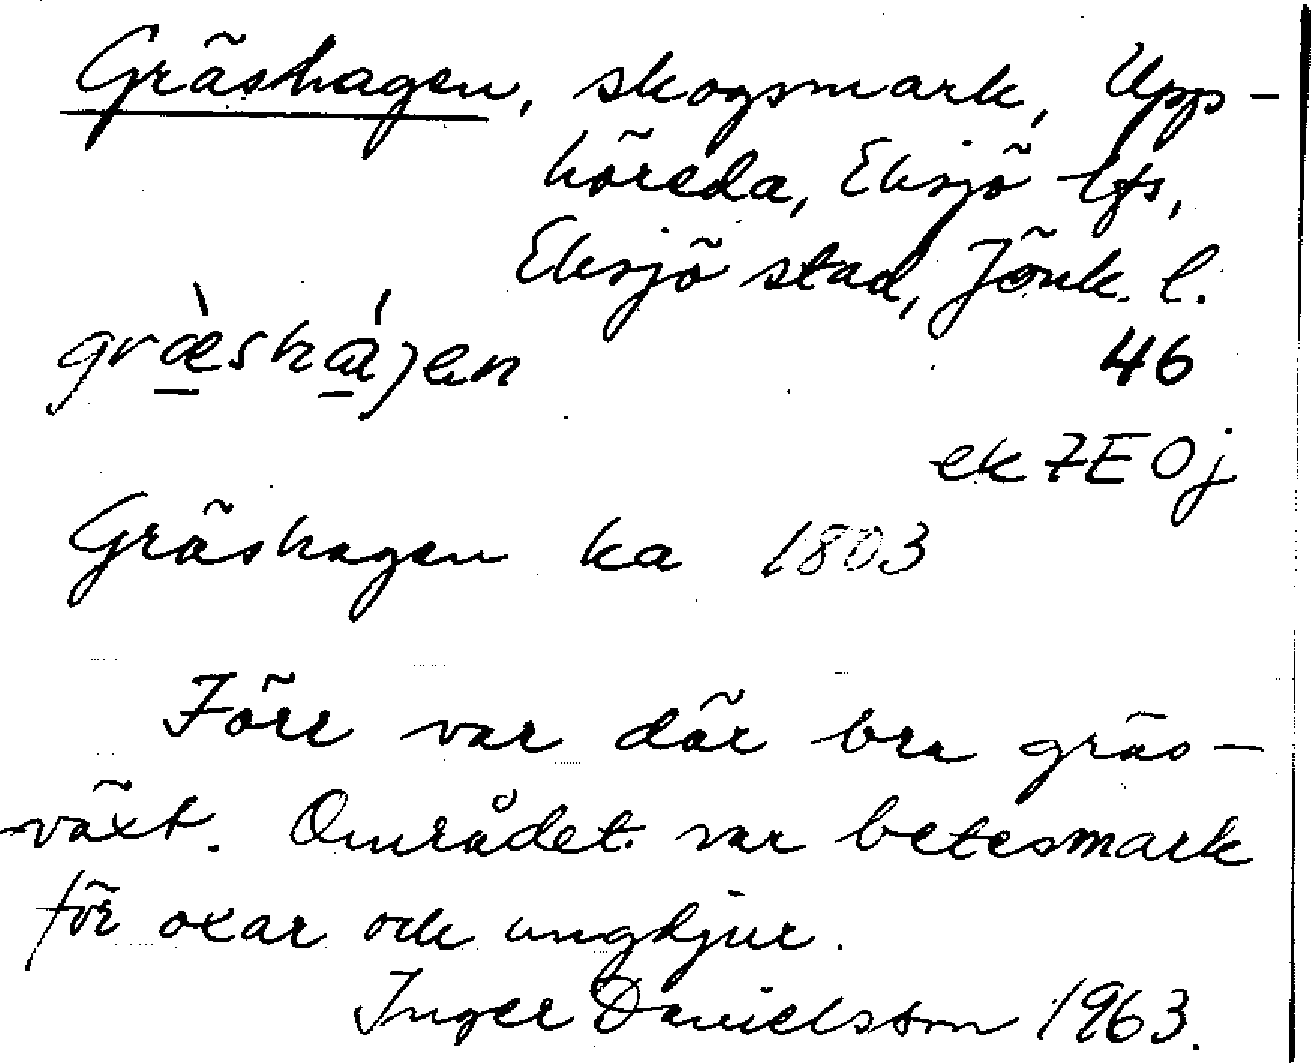 Gräshagen, skogsmark, Upp-
höreda, Eksjö lfs,
Eksjö stad, Jönk. l.
græ̠̀shɑ̠́jen
46
ek 7E 0j
Gräshagen ka 1803
Förr var där bra gräs-
växt. Området var betesmark
för oxar och ungdjur.
Inger Danielsson 1963.